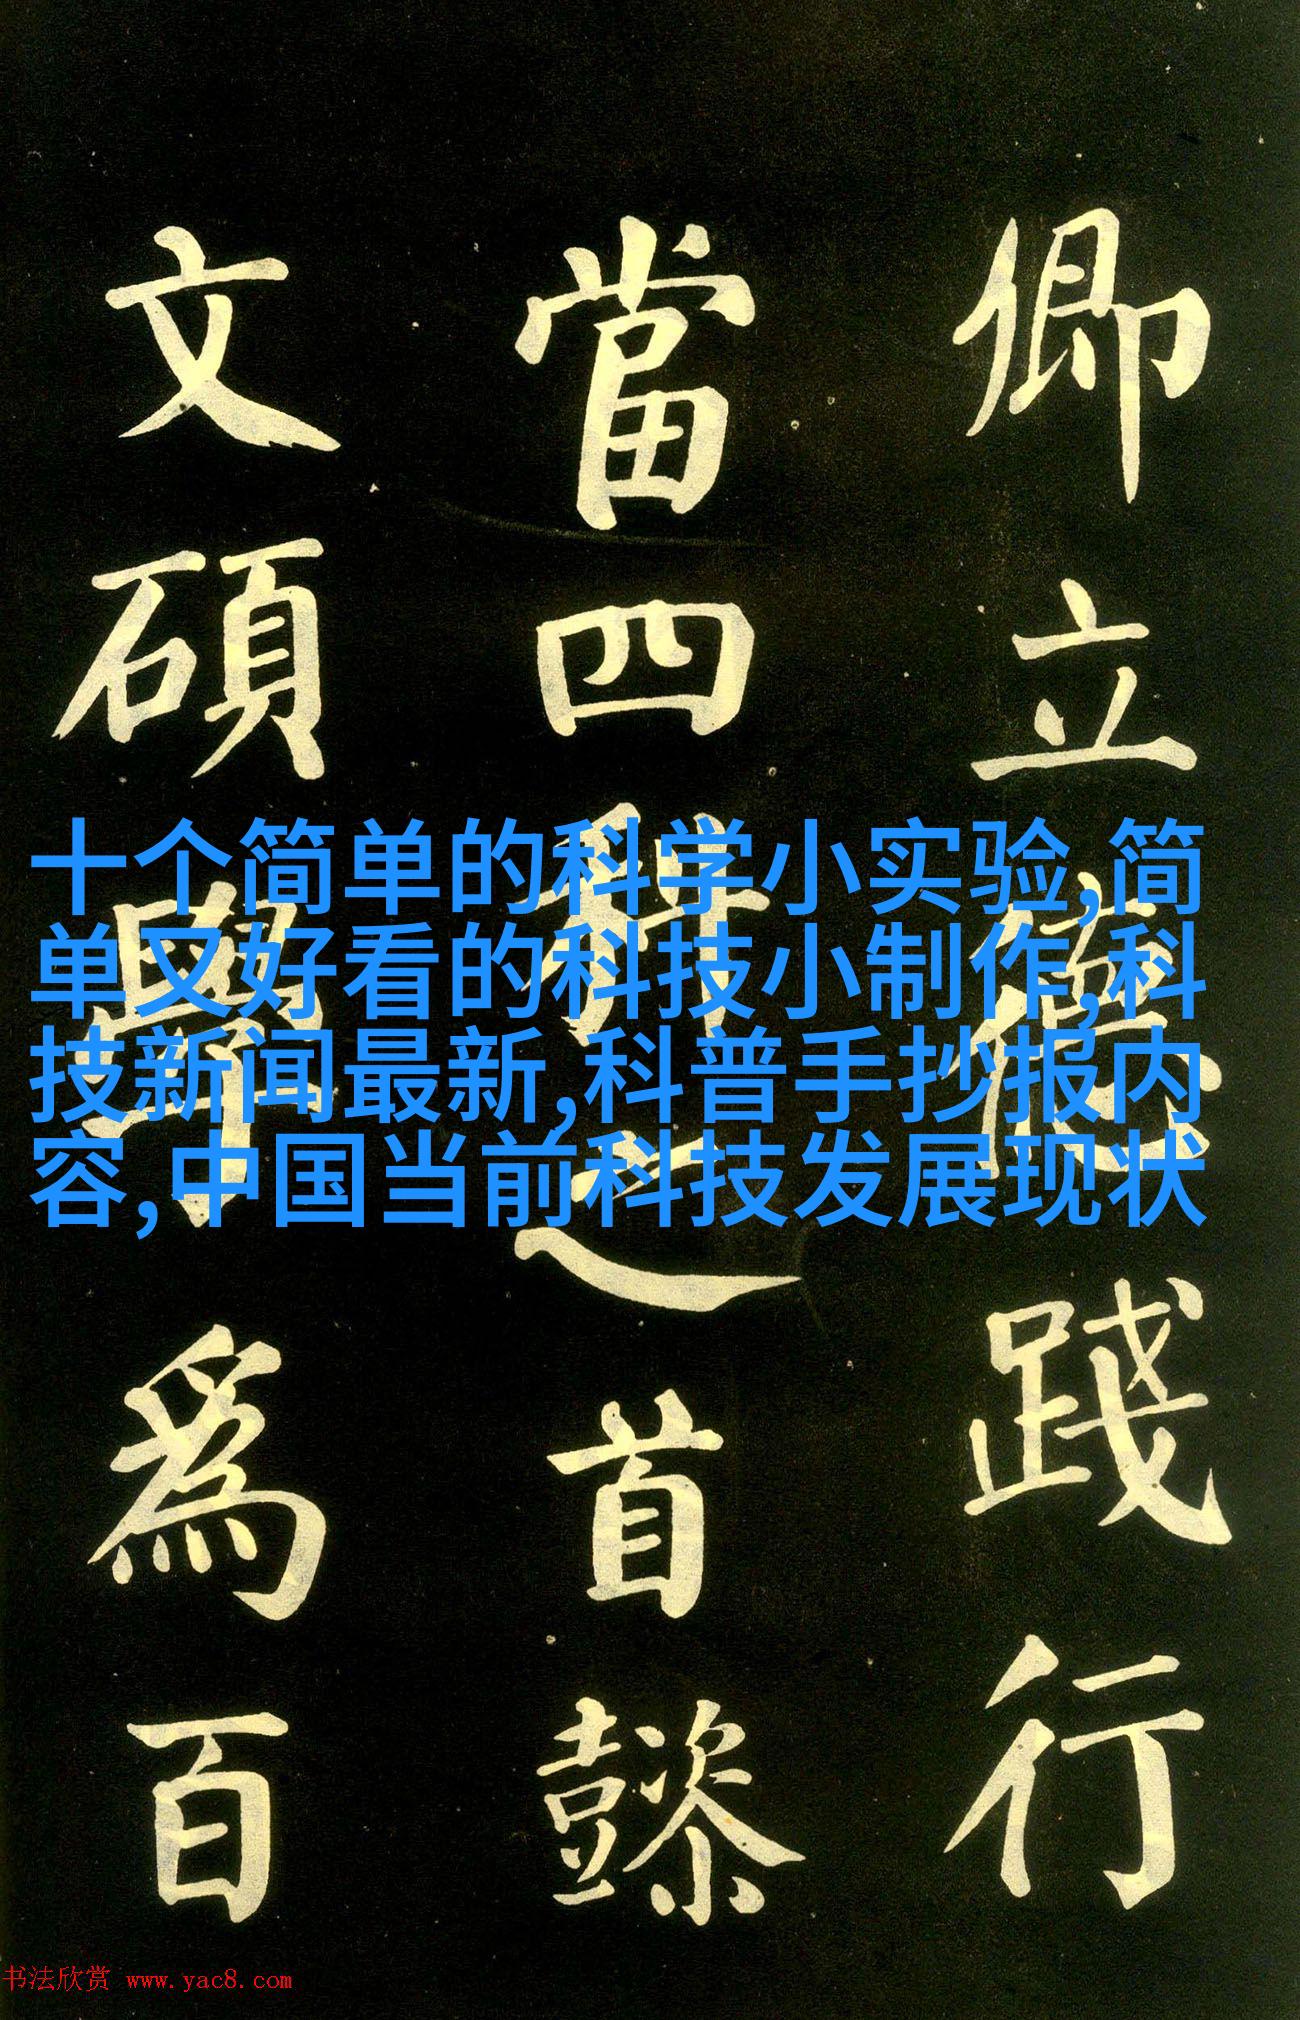 卿立德踐行
當四科之首懿
文碩學爲百
十个简单的科学小实验,简
单又好看的科技小制作,科
技新闻最新,科普手抄报内
容,中国当前科技发展现状
书法欣赏 www.yac8.com